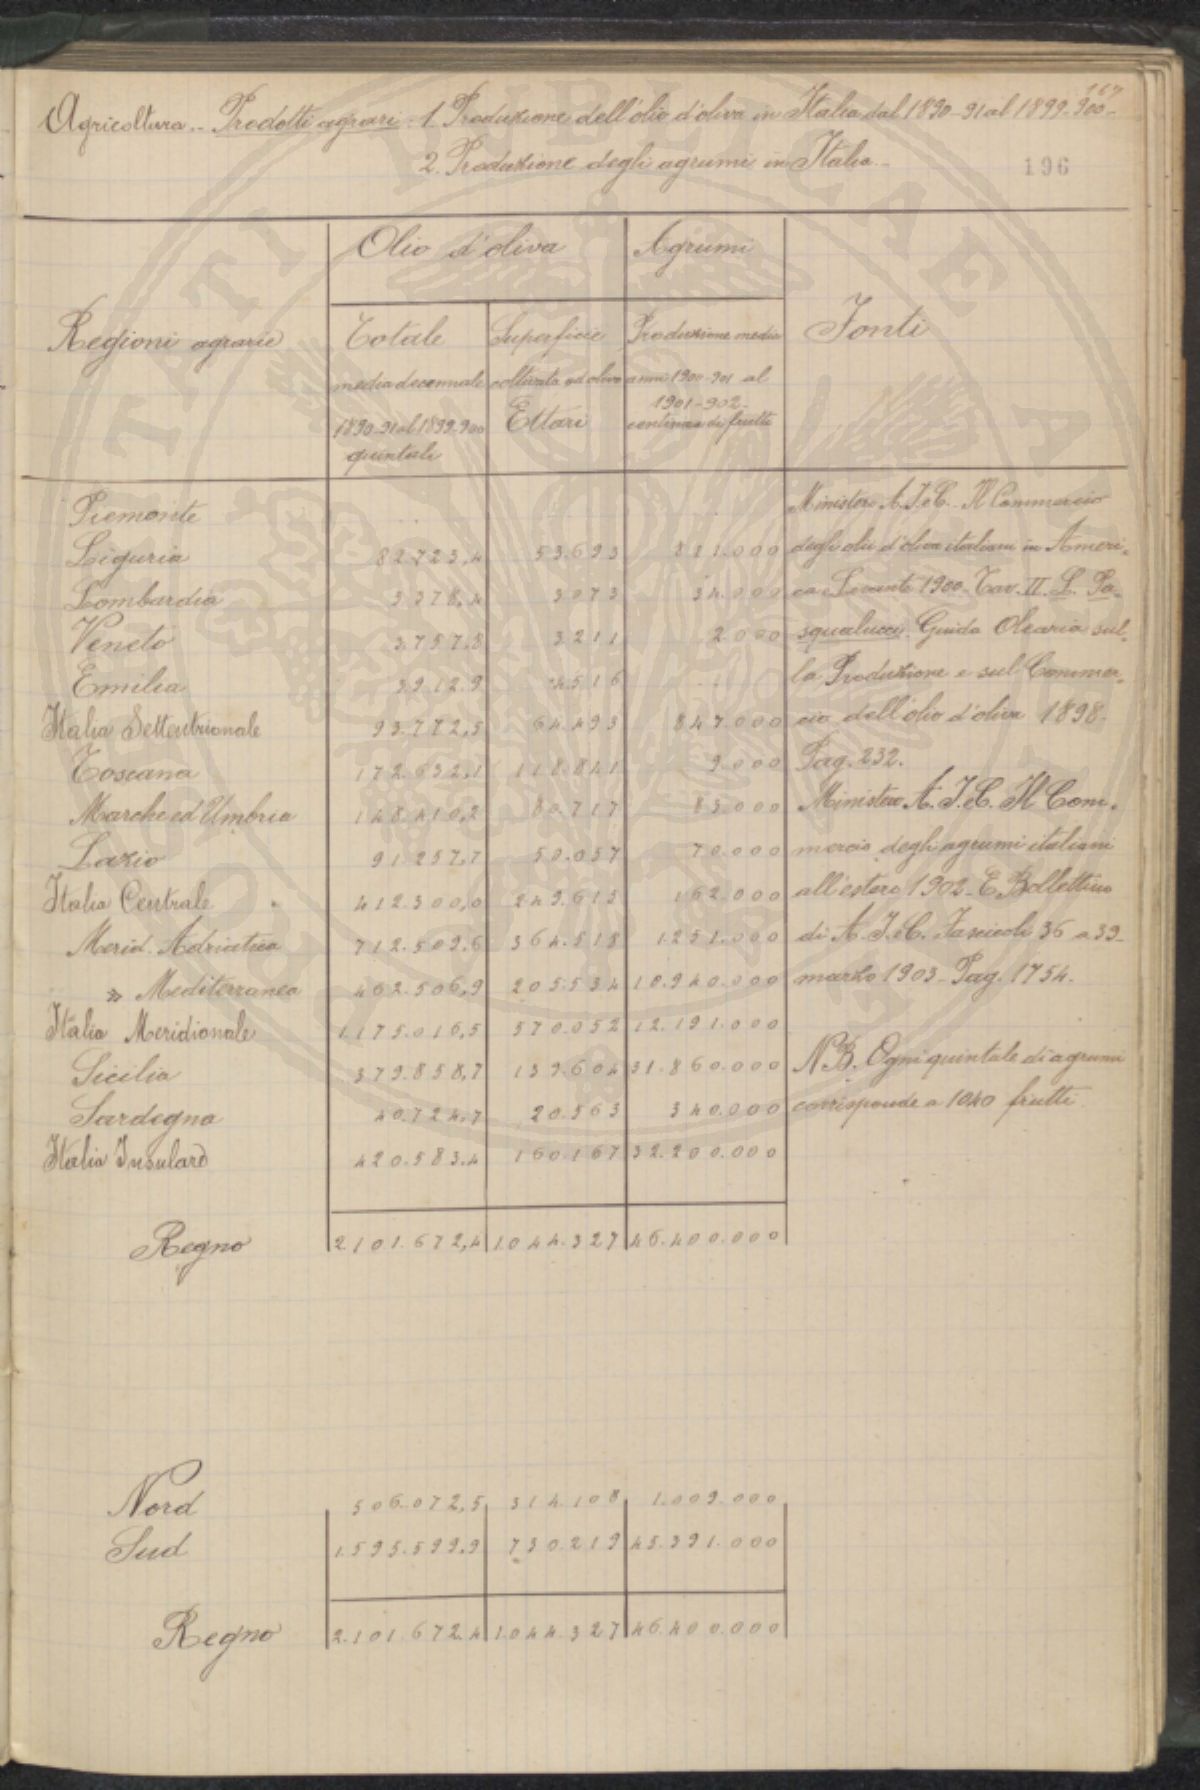 167
Agricoltura.- Prodotti agrari: 1. Produzione dell'olio d'oliva in Italia dal 1890-91 al 1899-900-
2. Produzione degli agrumi in Italia.-
196
Olio d'oliva Agrumi
Regioni agrarie Totale Superficie Produzione media Fonti
media decennale coltivata ad olivo anni 1900-901 al
1890-91 al 1899-900 Ettari 1901-902-
quintali centinaia di frutti
Piemonte
Liguria 82.723,4 53.693 811.000
Lombardia 3.378,4 3073 34.000
Veneto 3.757,8 3211 2.000
Emilia 3.912,9 4516
Italia Settentrionale 93.772,5 64.493 847.000
Toscana 172.632,1 118.841 9.000
Marche ed Umbria 148.410,2 80.717 83.000
Lazio 91.257,7 50.057 70.000
Italia Centrale 412.300,0 249.615 162.000
Merid. Adriatica 712.509,6 364.518 1.251.000
" Mediterranea 462.506,9 205.534 10.940.000
Italia Meridionale 1.175.016,5 570.052 12.191.000
Sicilia 379.858,7 139.604 31.860.000
Sardegna 40.724,7 20.563 340.000
Italia Insulare 420.583,4 160.167 32.200.000
Regno 2.101.672,4 1.044.327 46.400.000
Ministero A.I.eC. Il Commercio
degli olii d'oliva italiani in Ameri-
ca e Levante 1900. Tav. II. L. Pa-
squalucci. Guida Olearia sul-
la Produzione e sul Commer-
cio dell'olio d'oliva 1898-
Pag. 232.
Ministero A.I.eC. Il Com-
mercio degli agrumi italiani
all'estero 1902- E Bollettino
di A.I.eC. Fascicoli 36 a 39-
marzo 1903- Pag. 1754.
NB. Ogni quintale di agrumi
corrisponde a 1040 frutti
Nord 506.072,5 314.108 1.009.000
Sud 1.595.599,9 730.219 45.391.000
Regno 2.101.672,4 1.044.327 46.400.000